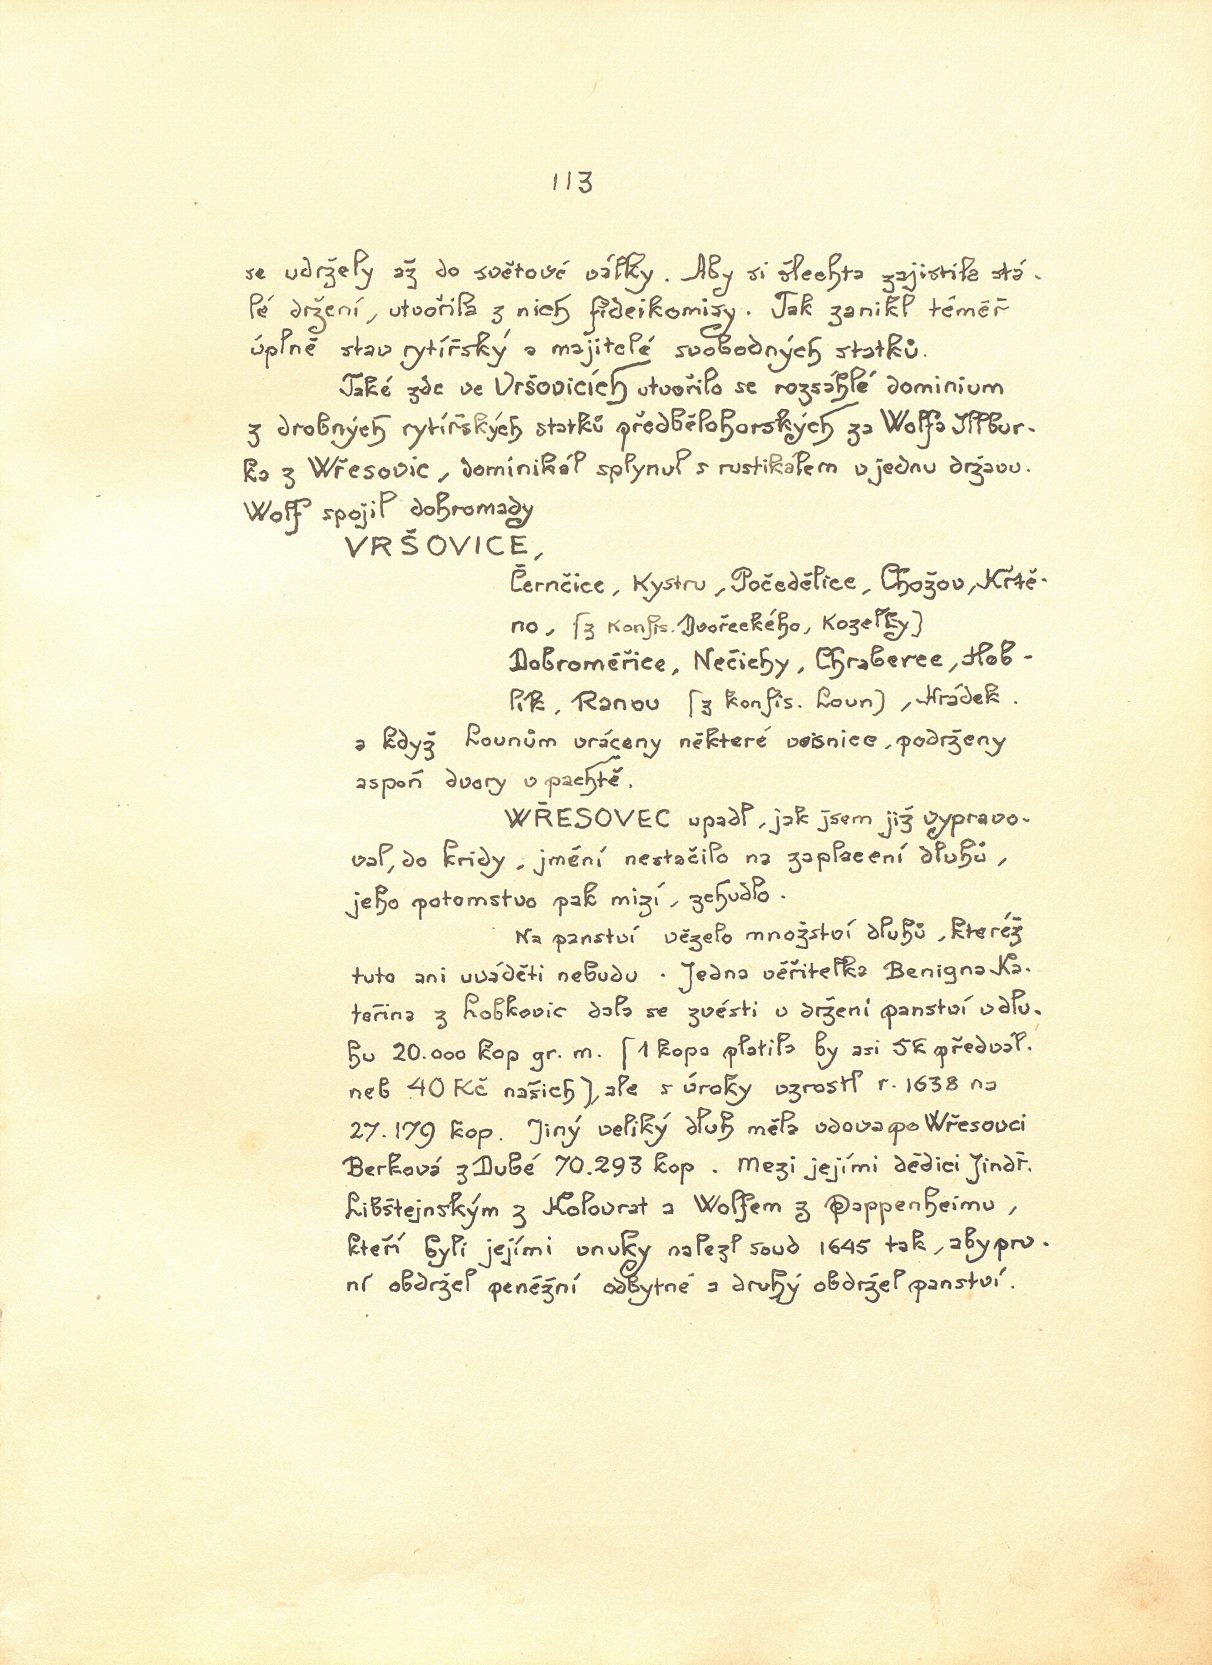 113
se udržely až do světové války. Aby si šlechta zajistila stá-
lé držení, utvořila z nich fideikomisy. Tak zanikl téměř
úplně stav rytířský a majitelé svobodných statků.
Také zde ve Vršovicích utvořilo se rozsáhlé dominium
z drobných rytířských statků předbělohorských za Wolfa Illbur-
ka z Wřesovic, dominikál splynul s rustikálem v jednu državu.
Wolf spojil dohromady
VRŠOVICE,
Černčice, Kystru, Počedělice, Chožov, Křtě-
no, (z konfis. Dvořeckého, Kozelky)
Dobroměřice, Nečichy, Chraberce, Hob-
lík, Ranou (z konfis. Loun), Hrádek.
a když Lounům vráceny některé vesnice, podrženy
aspoň dvory v pachtě.
WŘESOVEC upadl, jak jsem již vypravo-
val, do kridy, jmění nestačilo na zaplacení dluhů,
jeho potomstvo pak mizí, zchudlo.
Na panství vězelo množství dluhů, kteréž
tuto ani uváděti nebudu. Jedna věřitelka Benigna Ka-
teřina z Lobkovic dala se zvésti v držení panství v dlu-
hu 20.000 kop gr. m. (1 kopa platila by asi 5K předvál.
neb 40 Kč našich), ale s úroky vzrostl r. 1638 na
27.179 kop. Jiný veliký dluh měla vdova po Wřesovci
Berková z Dubé 70.293 kop. Mezi jejími dědici Jindř.
Libštejnským z Kolovrat a Wolfem z Pappenheimu,
kteří byli jejími vnuky nalezl soud 1645 tak, aby prv-
ní obdržel peněžní odbytné a druhý obdržel panství.